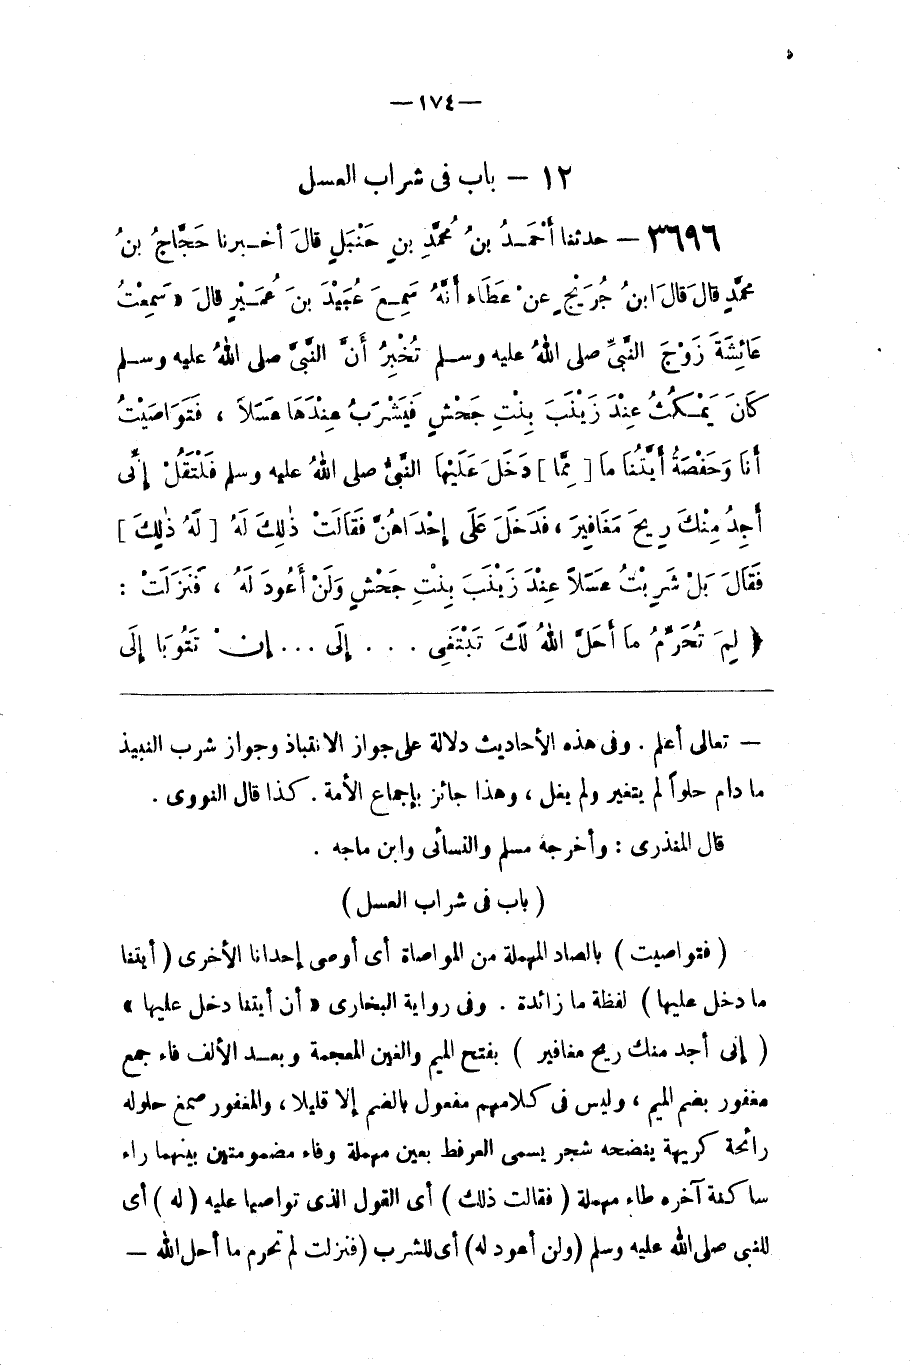 —١٧٤—
١٢ – باب فى شراب العسل
٣٦٩٦ – حدثنا أَحْمَـدُ بنُ مُحمَّدِ بنِ حَنْبَلٍ قالَ أخـبرنا حَجَّاجُ بنُ
محمَّدٍ قالَ قالَ ابنُ جُرَيْجٍ عنْ عَطَاء أنَّهُ سَمِـعَ عُبَيْدَ بنَ عُمَـيْرٍ قالَ « سَمِعْتُ
عَائِشَةَ زَوْجَ النَّبىِّ صلى اللهُ عليه وسـلم تُخْبِرُ أَنَّ النَّبىَّ صلى اللهُ عليه وسـلم
كَانَ يَمْـكُثُ عِنْدَ زَيْنَبَ بِنْتِ جَحْشٍ فَيَشْرَبُ عِنْدَهَا عَسَلاً ، فَتَوَاصَيْتُ
أنَا وَحَفْصَةُ أَيَّتُنَا مَا [ مِمَّا ] دَخَلَ عَلَيْهَا النَّبىُّ صلى اللهُ عليه وسلم فَلْتَقُلْ إنِّى
أجِدُ مِنْكَ رِيحَ مَغَافِيرَ ، فَدَخَلَ عَلَى إحْدَاهُنَّ فَقَالَتْ ذٰلِكَ لَهُ [ لَهُ ذٰلِكَ ]
فَقَالَ بَلْ شَرِبْتُ عَسَلاً عِنْدَ زَيْنَبَ بِنْتِ جَحْشٍ وَلَنْ أَعُودَ لَهُ ، فَنَزَلَتْ :
﴿ لِمَ تُحَرِّمُ مَا أَحَلَّ اللهُ لَكَ تَبْتَغِى . . . إلَى ... إنْ تَتُوبَا إلَى
— تعالى أعلم . وفى هذه الأحاديث دلالة على جواز الانتباذ وجواز شرب النبيذ
ما دام حلواً لم يتغير ولم يغل ، وهذا جائز بإجماع الأمة . كذا قال النووى .
قال المنذرى : وأخرجه مسلم والنسائى وابن ماجه .
( باب فى شراب العسل )
( فتواصيت ) بالصاد المهملة من المواصاة أى أوصى إحدانا الأخرى ( أيتنا
ما دخل عليها ) لفظة ما زائدة . وفى رواية البخارى « أن أيتنا دخل عليها »
( إنى أجد منك ريح مغافير ) بفتح الميم والغين المعجمة وبعـد الألف فاء جمع
مغفور بضم الميم ، وليس فى كلامهم مفعول بالضم إلا قليلا ، والمغفور صمغ حلوله
رائحة كريهة ينضحه شجر يسمى العرفط بعين مهملة وفاء مضمومتين بينهما راء
ساكنة آخره طاء مهملة ( فقالت ذلك ) أى القول الذى تواصيا عليه ( له ) أى
للنبى صلى الله عليه وسلم (ولن أعود له) أى للشرب (فنزلت لم تحرم ما أحل الله —